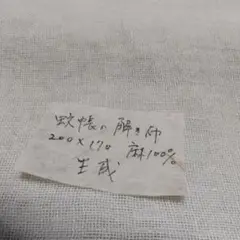 蚊帳の解き布
200×170 麻100%
生成